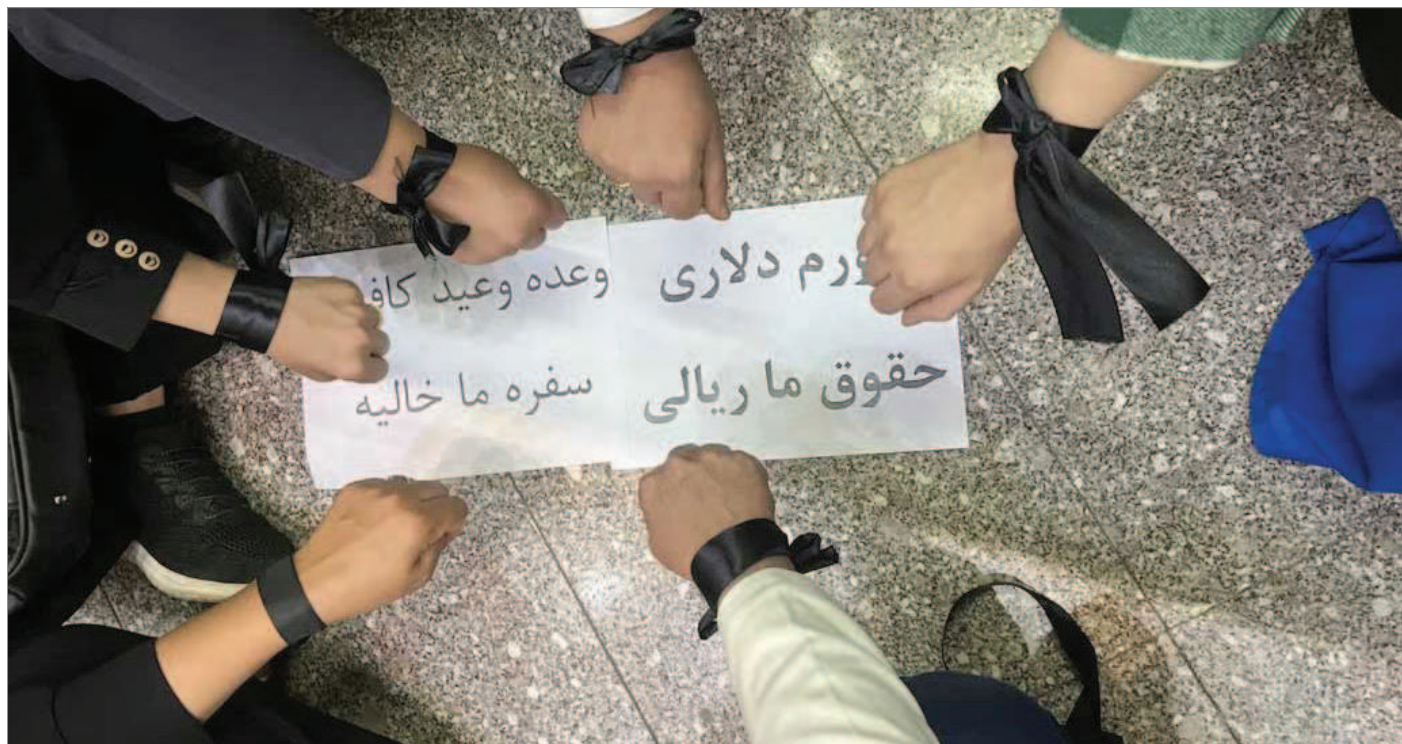 دلاری
حقوق ما ریالی
وعده وعید
سفره ما خالیه